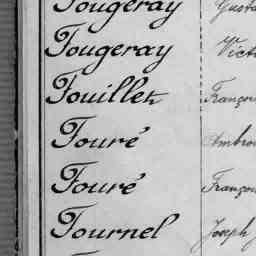 Fougeray Gusta
Fougeray Victo
Fouillet Franço
Fouré Ambro
Fouré Franço
Fournel Joseph J